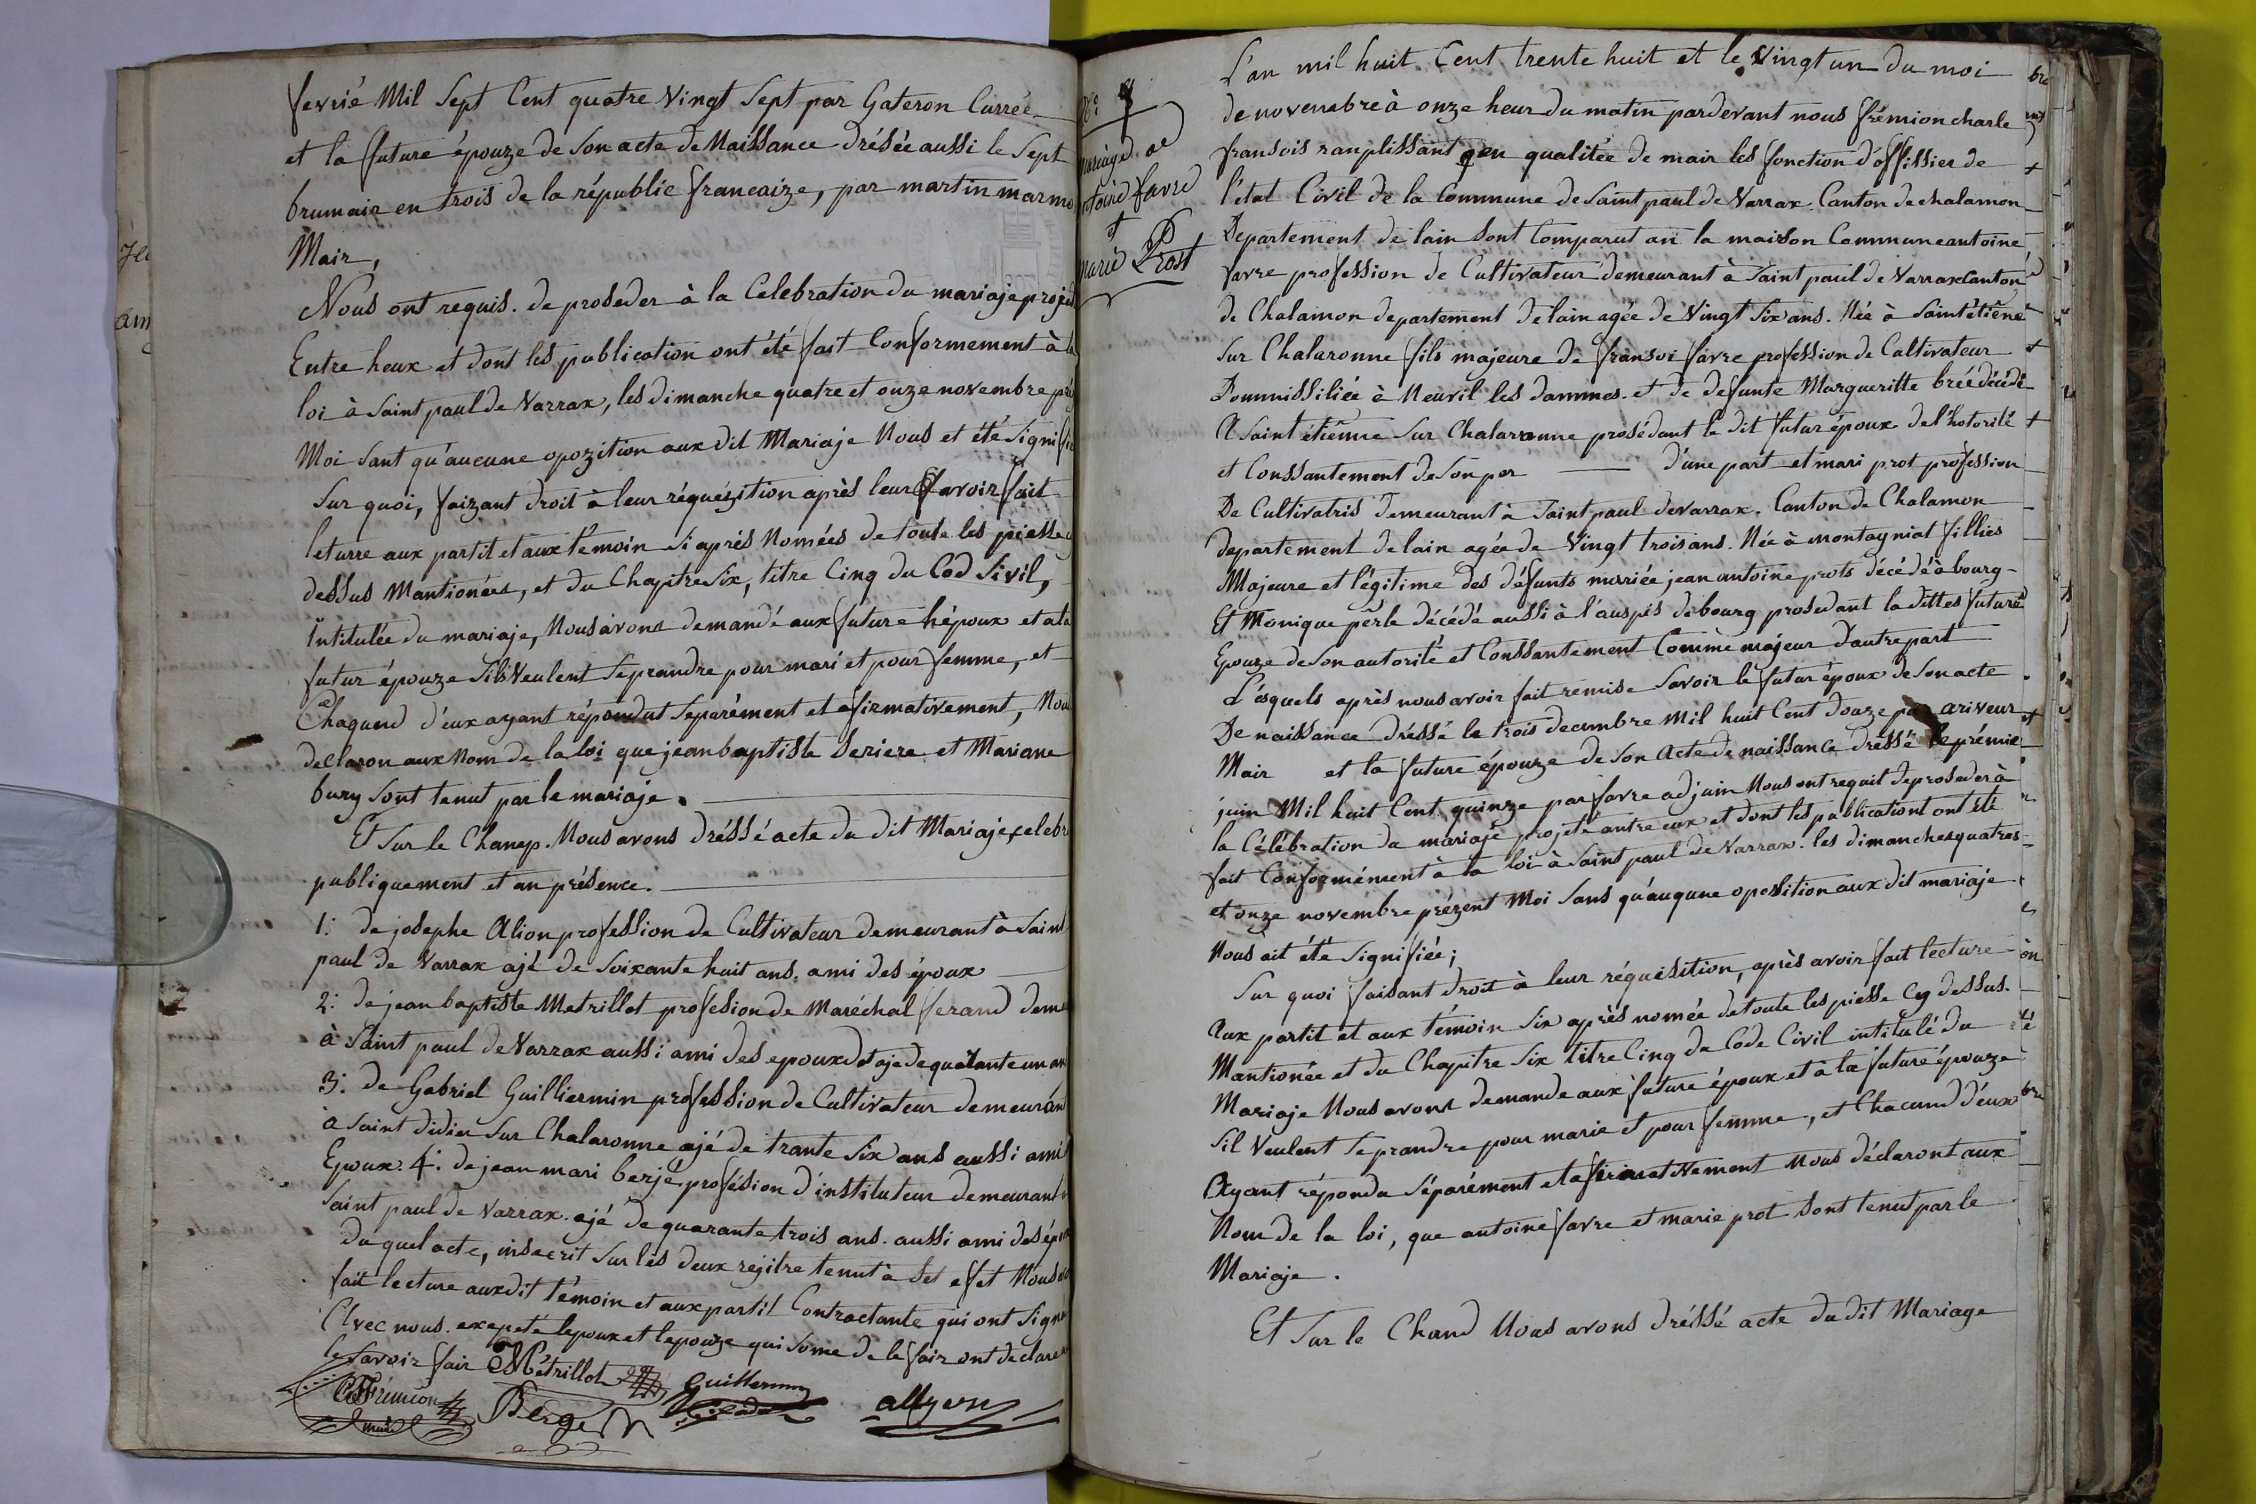 fevrié Mil Sept Cent quatre Vingt Sept par Gateron Currée
et la future épouze de Son acte de Naissance dréseé aussi le Sept
brumair en trois de la républic francaize, par martin marmo
Mair,
Nous ont requis. de proseder à la Celebration du mariaje projet
Entre heux et dont les publication ont été fait Conformement à la
loi à Saint paul de Varrax, les dimanche quatre et onze novembre pré
Moi Sant qu'aucune opozition aux dit Mariaje Nous et été Signifi
Sur quoi, faizant droit à leur réquézition après leur avoir fait
leturre aux partit et aux témoin Si après Nomées de toute les piesse
dessus Mantionées, et du Chapitre Six, titre Cinq du Cod Sivil,
Intitulée du mariaje, Nous avons demandé aux future hépoux et a la
futur épouze Sils Veulent Seprandre pour mari et pour femme, et
Chaqund d'eux ayant répondut Separément et afirmativement, Nou
declaron aux Nom de la loi que jean baptiste Seriere et Mariane
bury Sont tenut par le mariaje.
Et Sur le Chanp. Nous avons dréssé acte du dit Mariaje celebr
publiquement et an présence.
1: de josephe Alion profession de Cultivateur demeurant à Saint
paul de Varrax ajé de Soixante huit ans. ami des époux
2: de jean baptiste Metrillot profesion de Maréchal ferand deme
à Saint paul de Varrax aussi ami des epoux et aje de quarante un an
3: de Gabriel Guilliermin profession de Cultivateur demeurân
à Saint didier Sur Chalaronne ajé de trante Six ans aussi ami
Epoux. 4: de jean mari berjé profésion d'instituteur demeurant
Saint paul de Varrax. ajé de quarante trois ans. aussi ami des épou
du quel acte, inscerit Sur les deux rejitre tenut à Set efet Nous
fait lecture aux dit témoin et aux partit Contractante qui ont Signe
Avec nous. exepete lepoux et lepouze qui Some de le fair ont declare
le Savoir fair Métrillot
CFFrémion Guillermin
maire Berger allyon
N° 4
mariage de
ntoine favre
et
marie Prost
L'an mil huit Cent trente huit et le Vingt un du moi
de novenabre à onze heur du matin pardevant nous frémion charle
fransois ranplissant en qualitée de mair les fonction d'offissier de
l'état Civil de la Commune de Saint paul de Varrax. Canton de chalamon
Departement de lain Sont Comparut an la maison Commune antoine
favre profession de Cultivateur demeurant à Saint paul de Varrax Canton
de Chalamon departement de lain agée de Vingt Six ans. Née à Saint étiêne
Sur Chalaronne fils majeure de fransoi favre profession de Cultivateur
Doumissiliée à Neuvil les dammes. et de defunte Margueritte brée décédé
A Saint étiênne Sur Chalaronne prosédant le dit futur époux de l'hotorité
et Conssantement de Son per d'une part et mari prot profession
De Cultivatris demeurant à Saint paul de Varrax. Canton de Chalamon
departement de lain agée de Vingt trois ans. Née à montagniat fillies
Majeure et légitime des défunts marriée jean antoine prots décédé à bourg
Et Monique perle décédé aussi à l'auspis de bourg prosedant la dittes future
Epouze de Son autorité et Conssantement Comme majeur d'autre part
Lesquels après nous avoir fait remise Savoir le futur époux de Son acte
De naissance dréssé le trois decembre Mil huit Cent douze par ariveur
Mair et la future épouze de Son Acte de naissance dréssé le prémie
juin Mil huit Cent quinze par favre adjuin Nous ont requit de proseder à
la Célébration du mariaje projeté antre eux et dont les publicationt ont été
fait Conformément à la loi à Saint paul de Varrax. les dimanche quatres
et onze novembre prézent Moi Sans qu'auqune oposition aux dit mariaje
Nous ait été Signifiée;
Sur quoi faisant droit à leur réquisition, après avoir fait lecture
Aux partit et aux témoin Six après nomée de toute les piesse Cy dessus.
Mantionée et du Chapitre Six titre Cinq du Code Civil intitulé du
Mariaje Nous avons demande aux future époux et à la future épouze
Sil Veulent Se prandre pour marie et pour femme, et Chacund d'eux
Ayant répondu Séparément et afirmativement Nous déclaront aux
Nom de la loi, que antoine favre et marie prot Sont tenut par le
Mariaje.
Et Sur le Chand Nous avons dréssé acte du dit Mariage